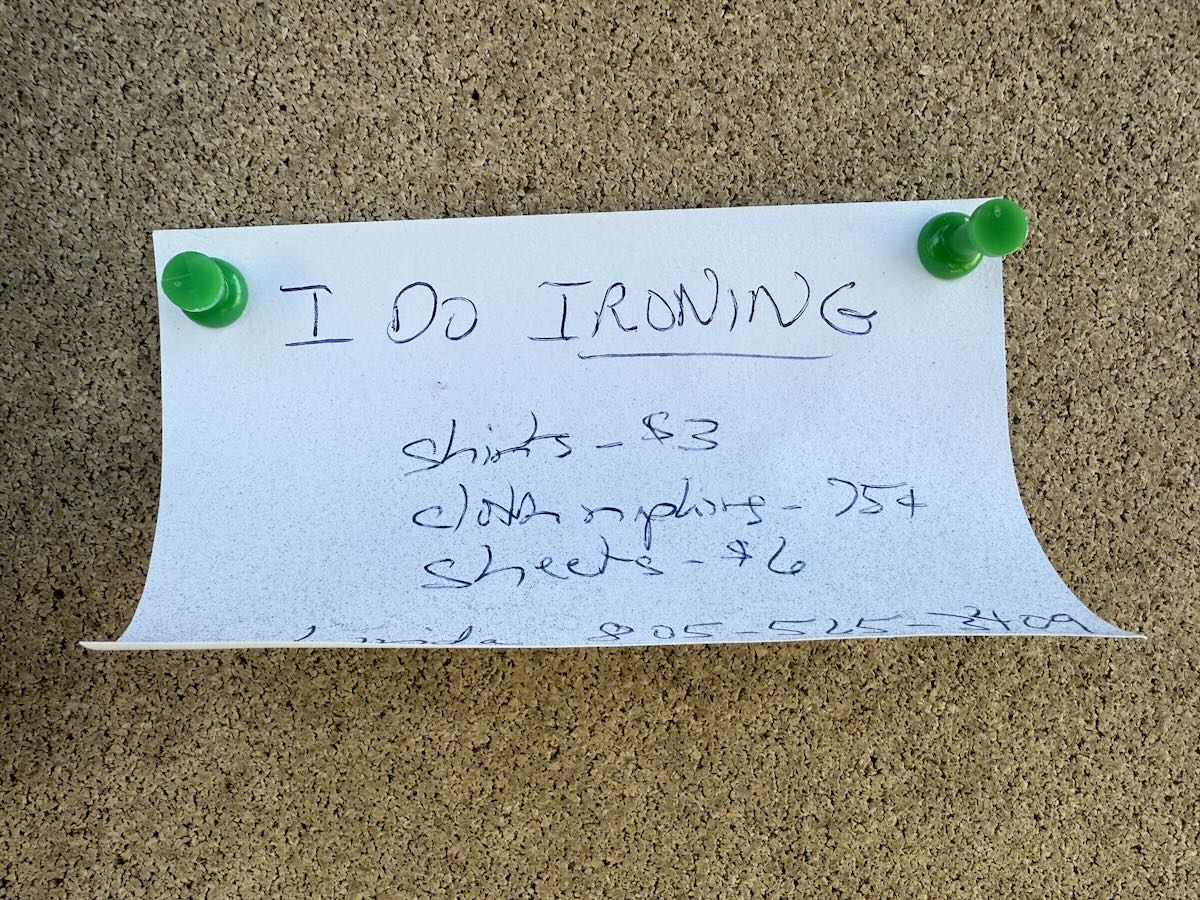 I DO IRONING
shirts - $3
cloth napkins - 75¢
sheets - $6
805-525-3409